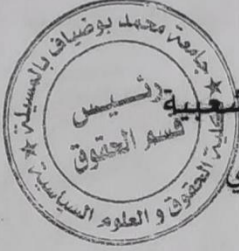 جامعة محمد بوضياف بالمسيلة
كلية الحقوق و العلوم السياسية
رئيس
قسم الحقوق
شعبية
ي